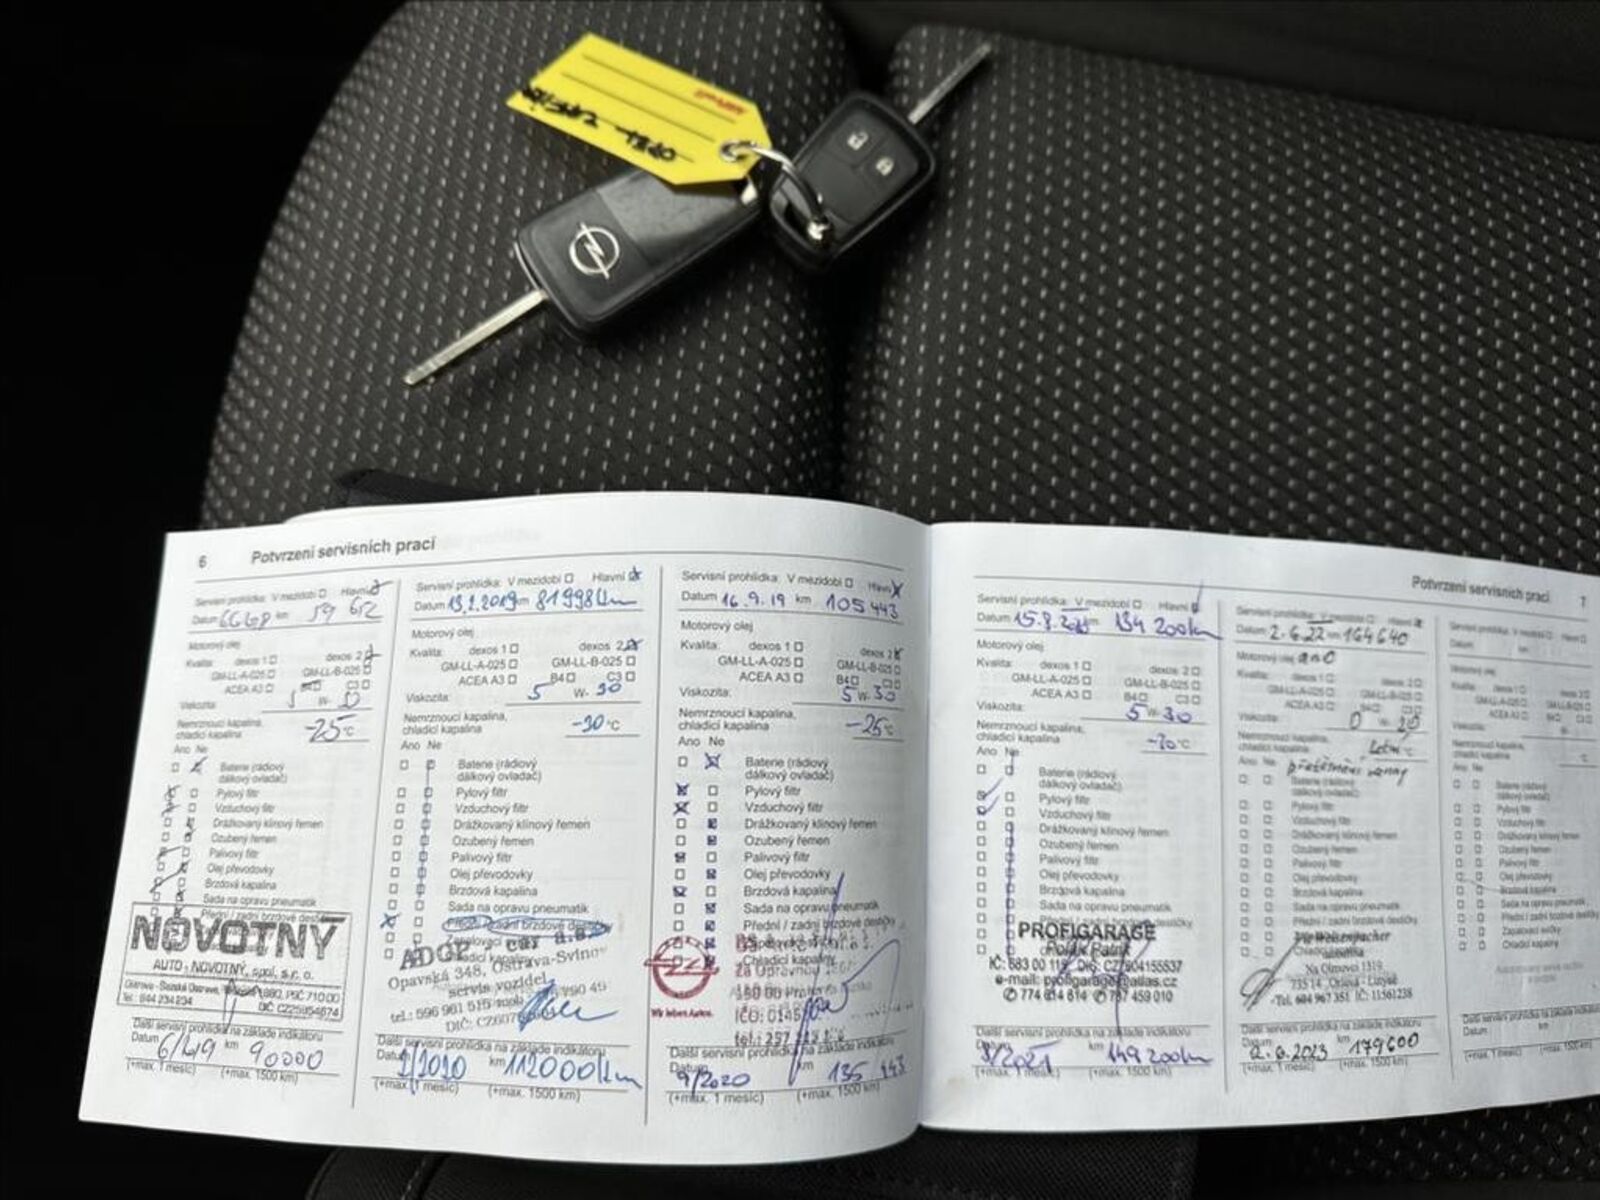 OPEL ZAFIRA
6 Potvrzení servisních prací
Servisní prohlídka: V mezidobí Hlavní
Datum km 59 612
Motorový olej
Kvalita: dexos 1 dexos 2
GM-LL-A-025 GM-LL-B-025
ACEA A3 B4 C3
Viskozita: 5 W-
Nemrznoucí kapalina,
chladicí kapalina -25 °C
Ano Ne
Baterie (rádiový
dálkový ovladač)
Pylový filtr
Vzduchový filtr
Drážkovaný klínový řemen
Ozubený řemen
Palivový filtr
Olej převodovky
Brzdová kapalina
Sada na opravu pneumatik
Přední / zadní brzdové destičky
NOVOTNÝ
AUTO - NOVOTNÝ, spol. s r. o.
Ostrava - Slezská Ostrava, PSČ 710 00
Tel.: 844 234 234
Další servisní prohlídka na základě indikátoru
Datum 6/2019 km 90000
(+max. 1 měsíc) (+max. 1500 km)
Servisní prohlídka: V mezidobí Hlavní
Datum 13.2.2019 km 81998 km
Motorový olej
Kvalita: dexos 1 dexos 2
GM-LL-A-025 GM-LL-B-025
ACEA A3 B4 C3
Viskozita: 5 W-30
Nemrznoucí kapalina,
chladicí kapalina -30 °C
Ano Ne
Baterie (rádiový
dálkový ovladač)
Pylový filtr
Vzduchový filtr
Drážkovaný klínový řemen
Ozubený řemen
Palivový filtr
Olej převodovky
Brzdová kapalina
Sada na opravu pneumatik
Přední / zadní brzdové destičky
car a.s.
Opavská 348, Ostrava-Svinov
servis vozidel
Další servisní prohlídka na základě indikátoru
Datum 2/2020 km 112000 km
(+max. 1 měsíc) (+max. 1500 km)
Servisní prohlídka: V mezidobí Hlavní
Datum 16.9.19 km 105 443
Motorový olej
Kvalita: dexos 1 dexos 2
GM-LL-A-025 GM-LL-B-025
ACEA A3 B4 C3
Viskozita: 5 W-30
Nemrznoucí kapalina,
chladicí kapalina -25 °C
Ano Ne
Baterie (rádiový
dálkový ovladač)
Pylový filtr
Vzduchový filtr
Drážkovaný klínový řemen
Ozubený řemen
Palivový filtr
Olej převodovky
Brzdová kapalina
Sada na opravu pneumatik
Přední / zadní brzdové destičky
Chladicí kapalina
Wir leben Autos.
Další servisní prohlídka na základě indikátoru
Datum 9/2020 km 135 443
(+max. 1 měsíc) (+max. 1500 km)
Potvrzení servisních prací 7
Servisní prohlídka: V mezidobí Hlavní
Datum km 134 200 km
Motorový olej
Kvalita: dexos 1 dexos 2
GM-LL-A-025 GM-LL-B-025
ACEA A3 B4 C3
Viskozita: 5 W-30
Nemrznoucí kapalina,
chladicí kapalina °C
Ano Ne
Baterie (rádiový
dálkový ovladač)
Pylový filtr
Vzduchový filtr
Drážkovaný klínový řemen
Ozubený řemen
Palivový filtr
Olej převodovky
Brzdová kapalina
Sada na opravu pneumatik
Přední / zadní brzdové destičky
PROFIGARAGE
Patrik
e-mail: profigarage@atlas.cz
Další servisní prohlídka na základě indikátoru
Datum km 149 200 km
(+max. 1 měsíc) (+max. 1500 km)
Servisní prohlídka: V mezidobí
Datum 2.6.22 km 164640
Motorový olej ano
Kvalita: dexos 1 dexos 2
GM-LL-A-025 GM-LL-B-025
ACEA A3 B4 C3
Viskozita: 0 W-20
Nemrznoucí kapalina,
chladicí kapalina
Ano Ne
Baterie (rádiový
dálkový ovladač)
Pylový filtr
Vzduchový filtr
Drážkovaný klínový řemen
Ozubený řemen
Palivový filtr
Olej převodovky
Brzdová kapalina
Sada na opravu pneumatik
Přední / zadní brzdové destičky
Na Olmovci 1319
735 14, Orlová - Lutyně
Tel. 604 967 351 IČ: 11561238
Další servisní prohlídka na základě indikátoru
2.6.2023 km 179600
(+max. 1 měsíc) (+max. 1500 km)
Servisní prohlídka: V mezidobí
Datum km
Motorový olej
Kvalita: dexos 1 dexos 2
Viskozita:
Nemrznoucí kapalina,
chladicí kapalina °C
Ano Ne
Baterie (rádiový
dálkový ovladač)
Pylový filtr
Vzduchový filtr
Drážkovaný klínový řemen
Ozubený řemen
Palivový filtr
Olej převodovky
Brzdová kapalina
Sada na opravu pneumatik
Přední / zadní brzdové destičky
Zapalovací svíčky
Chladicí kapalina
Další servisní prohlídka na základě indikátoru
Datum km
(+max. 1 měsíc) (+max. 1500 km)